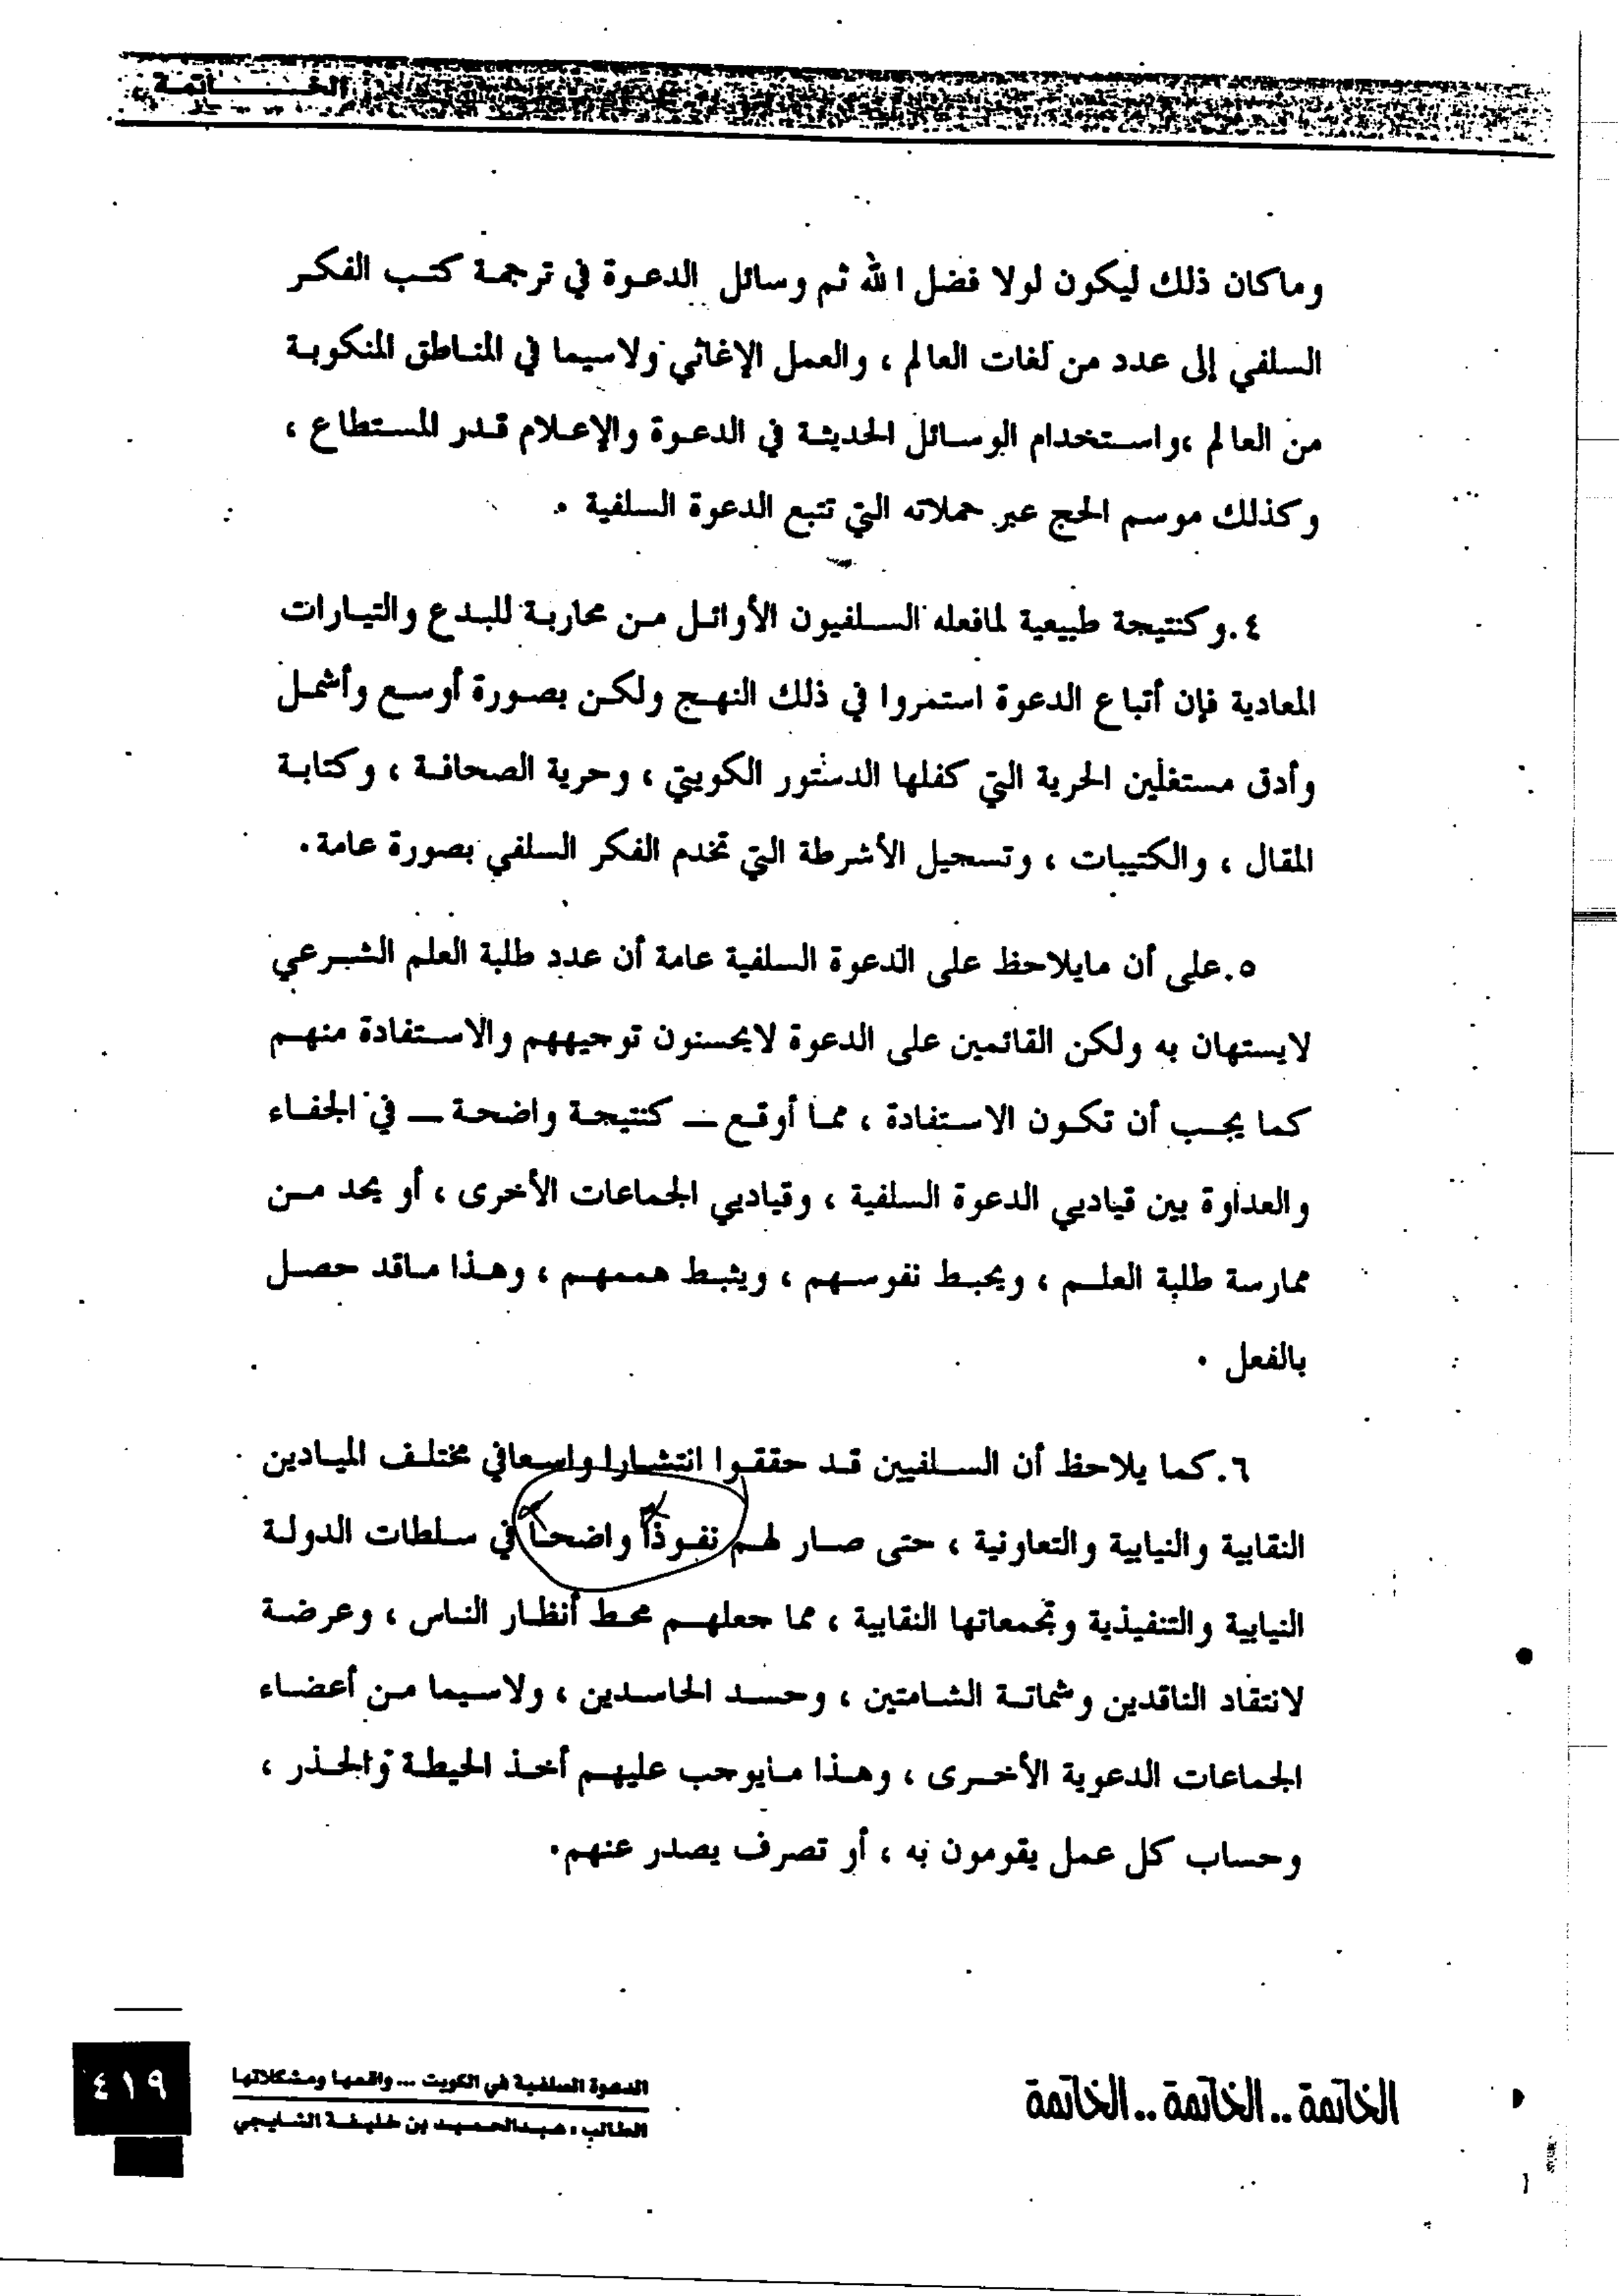 الخـــــاتمـة
وماكان ذلك ليكون لولا فضل الله ثم وسائل الدعوة في ترجمة كتب الفكر
السلفي إلى عدد من لغات العالم ، والعمل الإغاثي ولاسيما في المناطق المنكوبة
من العالم ،واستخدام الوسائل الحديثة في الدعوة والإعلام قدر المستطاع ،
وكذلك موسم الحج عبر حملاته التي تتبع الدعوة السلفية .
٤.وكنتيجة طبيعية لمافعله السلفيون الأوائل من محاربة للبدع والتيارات
المعادية فإن أتباع الدعوة استمروا في ذلك النهج ولكن بصورة أوسع وأشمل
وأدق مستغلين الحرية التي كفلها الدستور الكويتي ، وحرية الصحافة ، وكتابة
المقال ، والكتيبات ، وتسجيل الأشرطة التي تخدم الفكر السلفي بصورة عامة.
٥.على أن مايلاحظ على الدعوة السلفية عامة أن عدد طلبة العلم الشرعي
لايستهان به ولكن القائمين على الدعوة لايحسنون توجيههم والاستفادة منهم
كما يجب أن تكون الاستفادة ، مما أوقع – كنتيجة واضحة – في الجفاء
والعداوة بين قياديي الدعوة السلفية ، وقياديي الجماعات الأخرى ، أو يحد من
ممارسة طلبة العلم ، ويحبط نفوسهم ، ويثبط هممهم ، وهذا ماقد حصل
بالفعل .
٦.كما يلاحظ أن السلفيين قد حققوا انتشارا واسعافي مختلف الميادين
النقابية والنيابية والتعاونية ، حتى صار لهم نفوذاً واضحاً في سلطات الدولة
النيابية والتنفيذية وتجمعاتها النقابية ، مما جعلهم محط أنظار الناس ، وعرضة
لانتقاد الناقدين وشماتة الشامتين ، وحسد الحاسدين ، ولاسيما من أعضاء
الجماعات الدعوية الأخرى ، وهذا مايوجب عليهم أخذ الحيطة والحذر ،
وحساب كل عمل يقومون به ، أو تصرف يصدر عنهم.
الخاتمة .. الخاتمة .. الخاتمة
الدعوة السلفية في الكويت ... واقعها ومشكلاتها
الطالب : عبدالحميد بن خليفة الشايجي
٤١٩